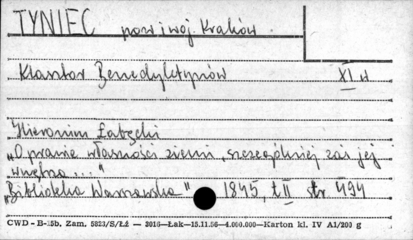 TYNIEC pow i wój. Kraków
Klasztor Benedyktynów XI w
Hieronim Łabęcki
„O prawie własności ziemi, szczególniej zaś jej
wnętrza ..."
„Biblioteka Warszawska" 1845, t. II str 494
CWD - B-55b. Zam. 5823/S/Łd — 3016—Łak—15.11.56—4.000.000—Karton kl. IV A1/200 g